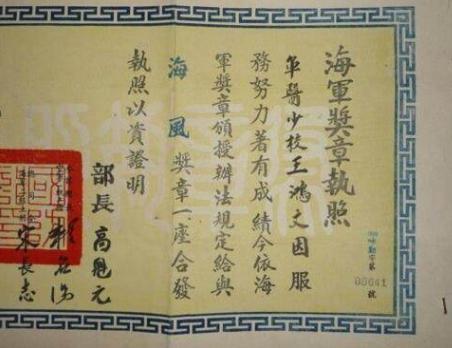 海軍獎章執照
軍醫少校王鴻文因服
務努力著有成績今依海
軍獎章頒授辦法規定給與
海風獎章一座合發
執照以資證明
部長 高魁元
宋長志
字第 00641 號